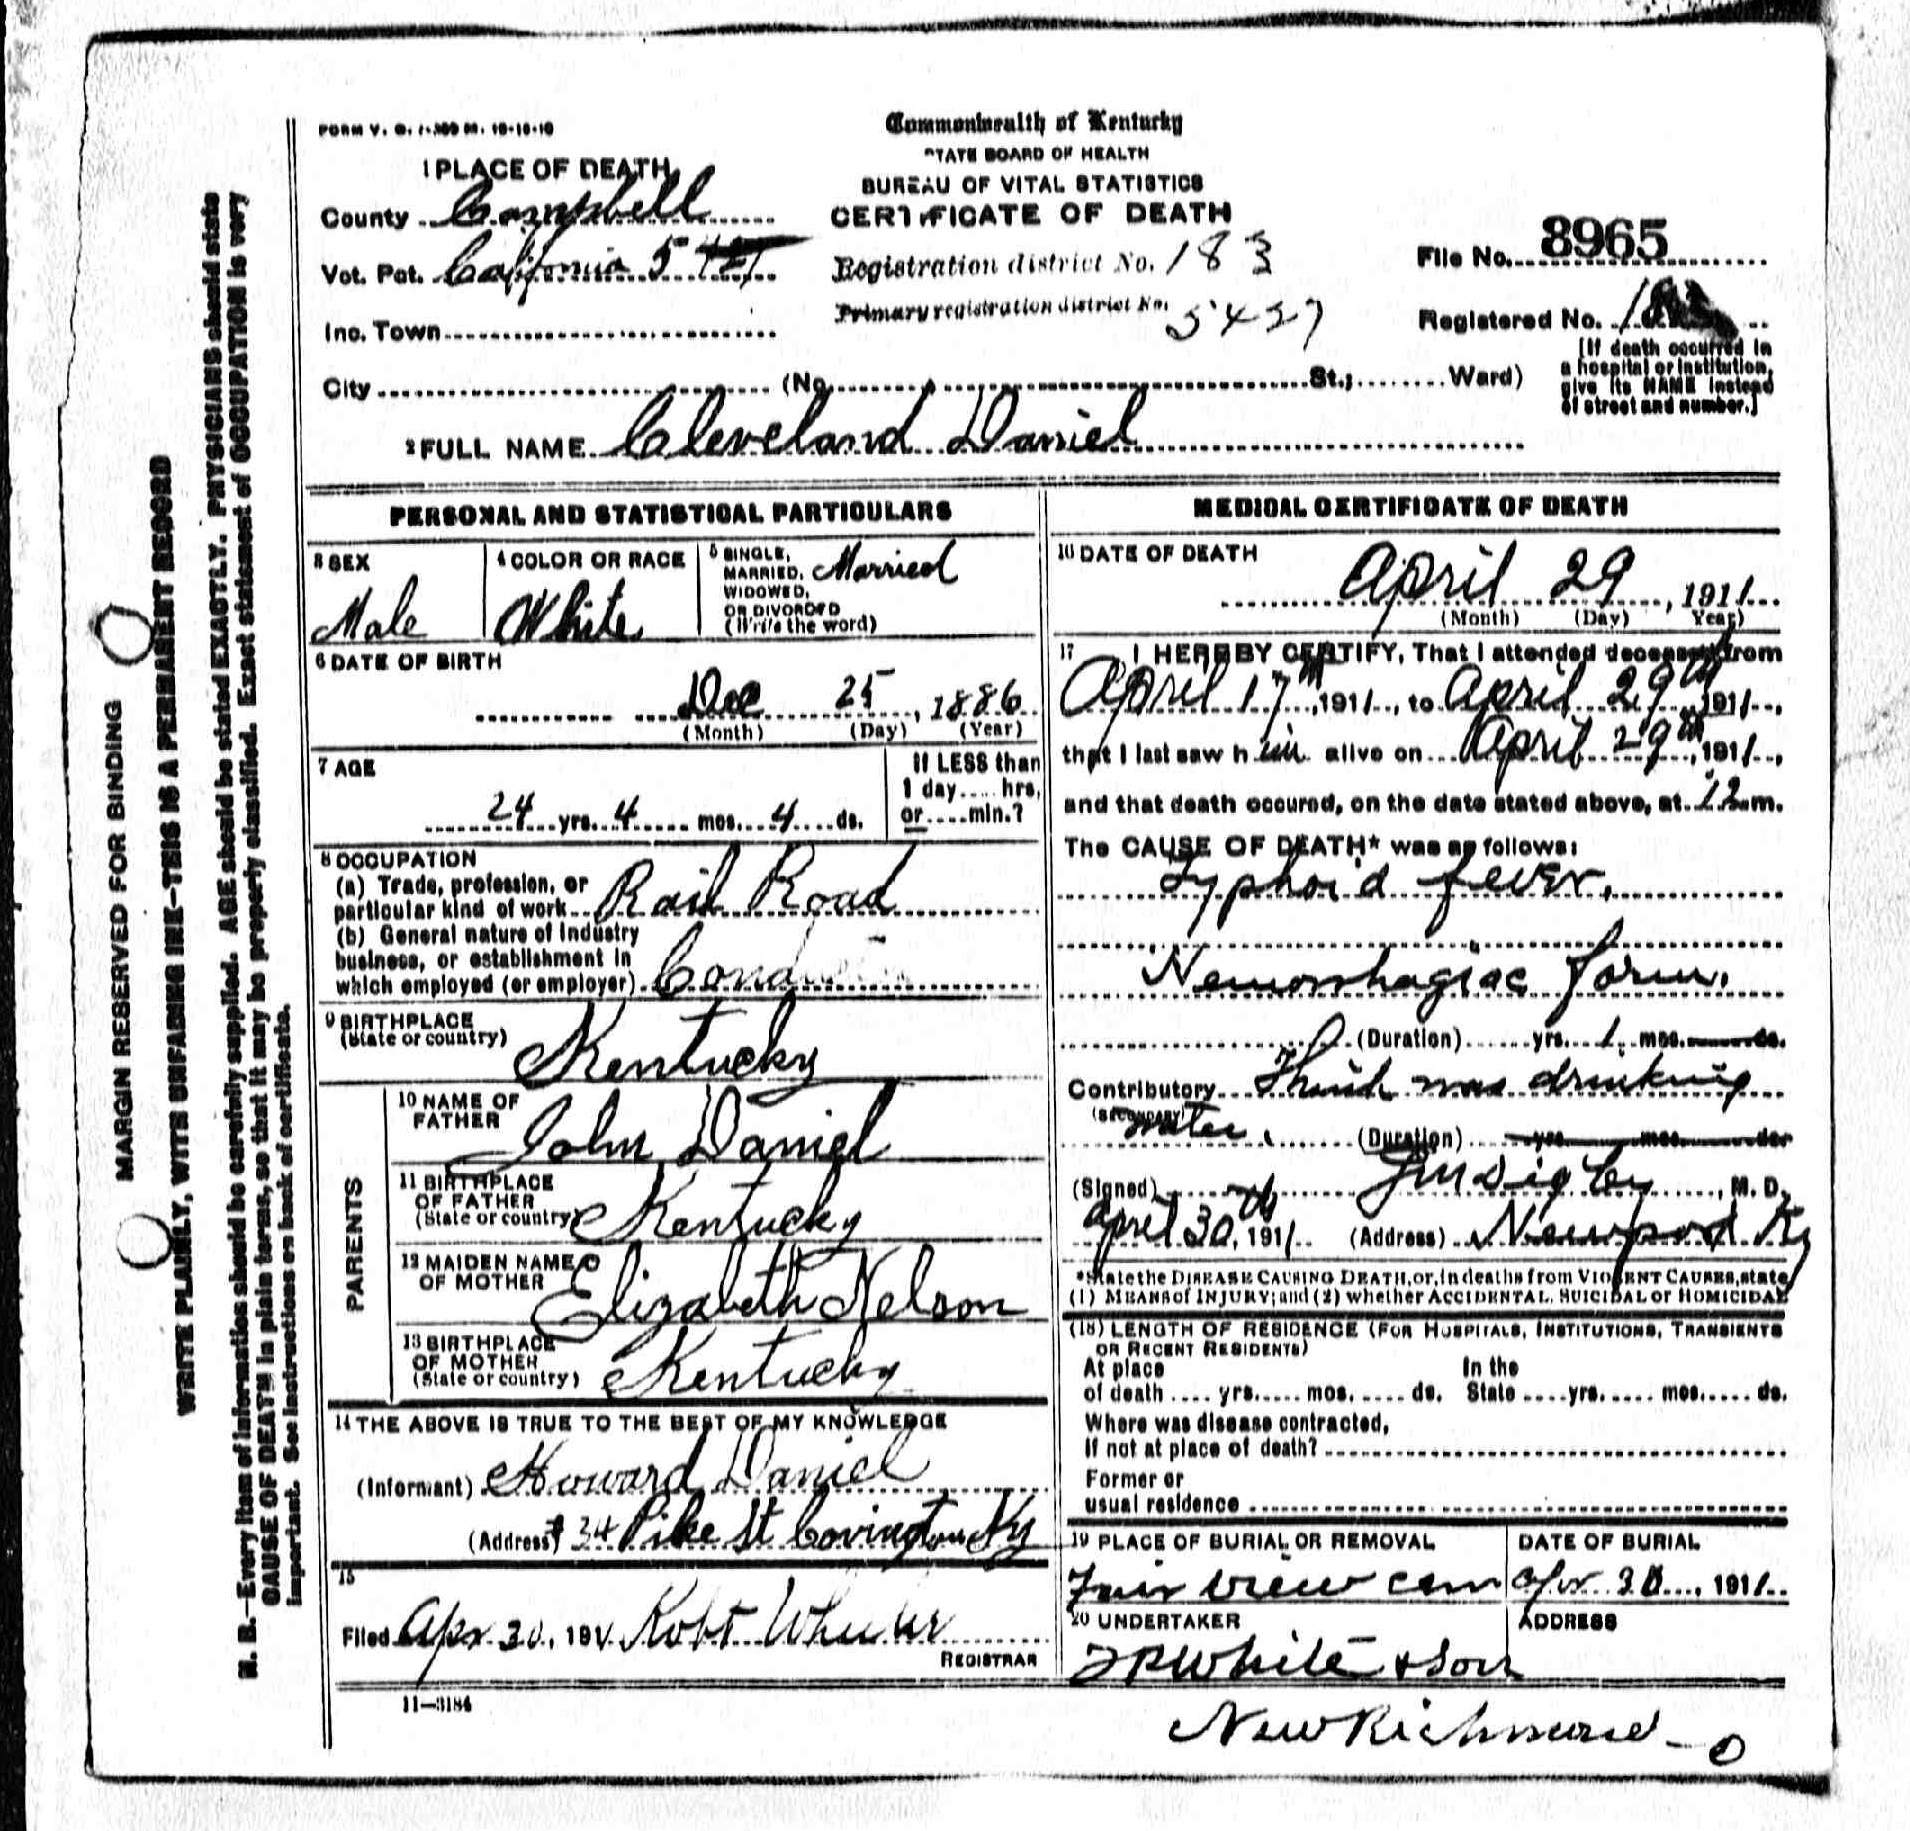 FORM V. S. 1-300 M. 10-10-10
Commonwealth of Kentucky
STATE BOARD OF HEALTH
BUREAU OF VITAL STATISTICS
CERTIFICATE OF DEATH
1 PLACE OF DEATH
County Campbell
Vot. Pct. California 5
Inc. Town
City (No. St.; Ward)
Registration district No. 183
Primary registration district No. 5437
File No. 8965
Registered No.
[If death occurred in
a hospital or institution,
give its NAME instead
of street and number.]
2 FULL NAME Cleveland Daniel
PERSONAL AND STATISTICAL PARTICULARS
3 SEX
Male
4 COLOR OR RACE
White
5 SINGLE,
MARRIED,
WIDOWED,
OR DIVORCED
(Write the word)
Married
6 DATE OF BIRTH
Dec 25, 1886
(Month) (Day) (Year)
7 AGE
24 yrs. 4 mos. 4 ds.
If LESS than
1 day.... hrs.
or....min.?
8 OCCUPATION
(a) Trade, profession, or
particular kind of work Rail Road
(b) General nature of Industry
business, or establishment in
which employed (or employer)
9 BIRTHPLACE
(State or country)
Kentucky
PARENTS
10 NAME OF
FATHER
John Daniel
11 BIRTHPLACE
OF FATHER
(State or country)
Kentucky
12 MAIDEN NAME
OF MOTHER
Elizabeth Nelson
13 BIRTHPLACE
OF MOTHER
(State or country)
Kentucky
14 THE ABOVE IS TRUE TO THE BEST OF MY KNOWLEDGE
(Informant) Howard Daniel
(Address) 34 Pike St Covington Ky
15
Filed Apr 30, 191 Robt Wheeler
REGISTRAR
11—3184
MEDICAL CERTIFICATE OF DEATH
16 DATE OF DEATH
April 29, 1911
(Month) (Day) Year)
17 I HEREBY CERTIFY, That I attended deceased from
April 17th, 1911, to April 29th 1911,
that I last saw him alive on April 29th, 1911,
and that death occured, on the date stated above, at 12 m.
The CAUSE OF DEATH* was as follows:
Typhoid fever.
Hemorrhagiac form.
(Duration) yrs. 1 mos. ds.
Contributory Think was drinking
(SECONDARY)
water. (Duration) yrs. mos. ds.
(Signed) J M Digby, M. D.
April 30th, 1911 (Address) Newport Ky
*State the DISEASE CAUSING DEATH, or, in deaths from VIOLENT CAUSES, state
(1) MEANS of INJURY; and (2) whether ACCIDENTAL, SUICIDAL or HOMICIDAL
(18) LENGTH OF RESIDENCE (FOR HOSPITALS, INSTITUTIONS, TRANSIENTS
OR RECENT RESIDENTS)
At place
of death .... yrs..... mos. .... ds.
In the
State .... yrs. .... mos..... ds.
Where was disease contracted,
if not at place of death?
Former or
usual residence
19 PLACE OF BURIAL OR REMOVAL
Fair view cem
DATE OF BURIAL
Apr 30, 1911
20 UNDERTAKER
White & Son
ADDRESS
New Richmond O
MARGIN RESERVED FOR BINDING
WRITE PLAINLY, WITH UNFADING INK—THIS IS A PERMANENT RECORD
N. B.—Every item of information should be carefully supplied. AGE should be stated EXACTLY. PHYSICIANS should state
CAUSE OF DEATH in plain terms, so that it may be properly classified. Exact statement of OCCUPATION is very
important. See instructions on back of certificate.